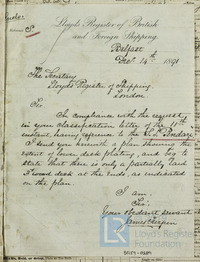 Lloyd's Register of British
and Foreign Shipping,
Belfast
Decr 14th 1891
The Secretary
Lloyd's Register of Shipping
London
Sir
In compliance with the request
in your classification letter of the
instant, having reference to the S.S.
I send you herewith a plan showing the
extent of lower deck plating, and to
state that there is only a partially laid
wood deck at the ends, as indicated
on the plan.
I am
Sir
Your obedient servant
Lloyd's Register
Foundation